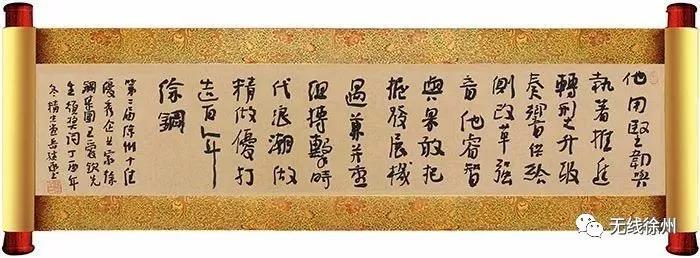 他用堅韌與
執著推進
轉型升级
奏響供給
側改革強
音他睿智
與果敢把
握發展機
遇兼并重
組搏擊時
代浪潮做
精做優打
造百年
徐鋼
第二届徐州十佳
優秀企业家徐
鋼集團王愛欽先
生頒獎词丁酉年
冬
无线徐州